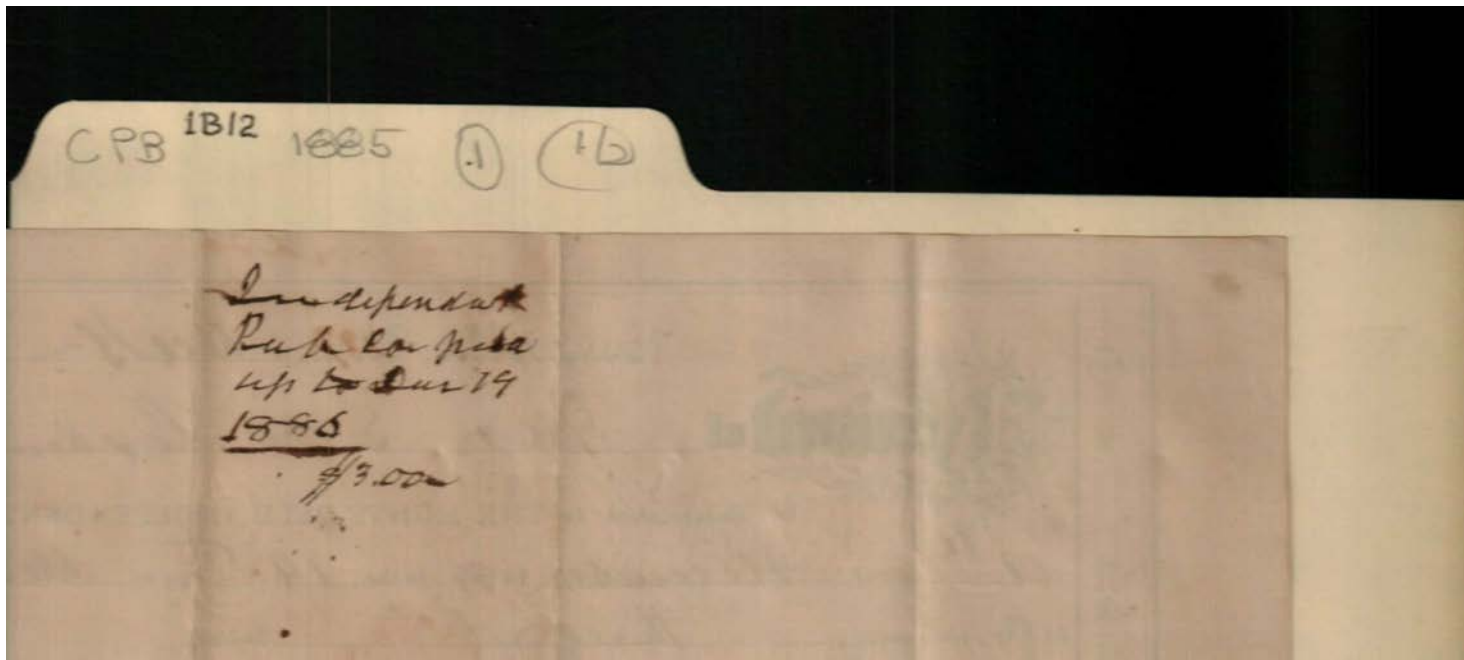 CPB 1B12 1885 1 16
Independent
Pub Co paid
up to Dec 19
1886
$3.00